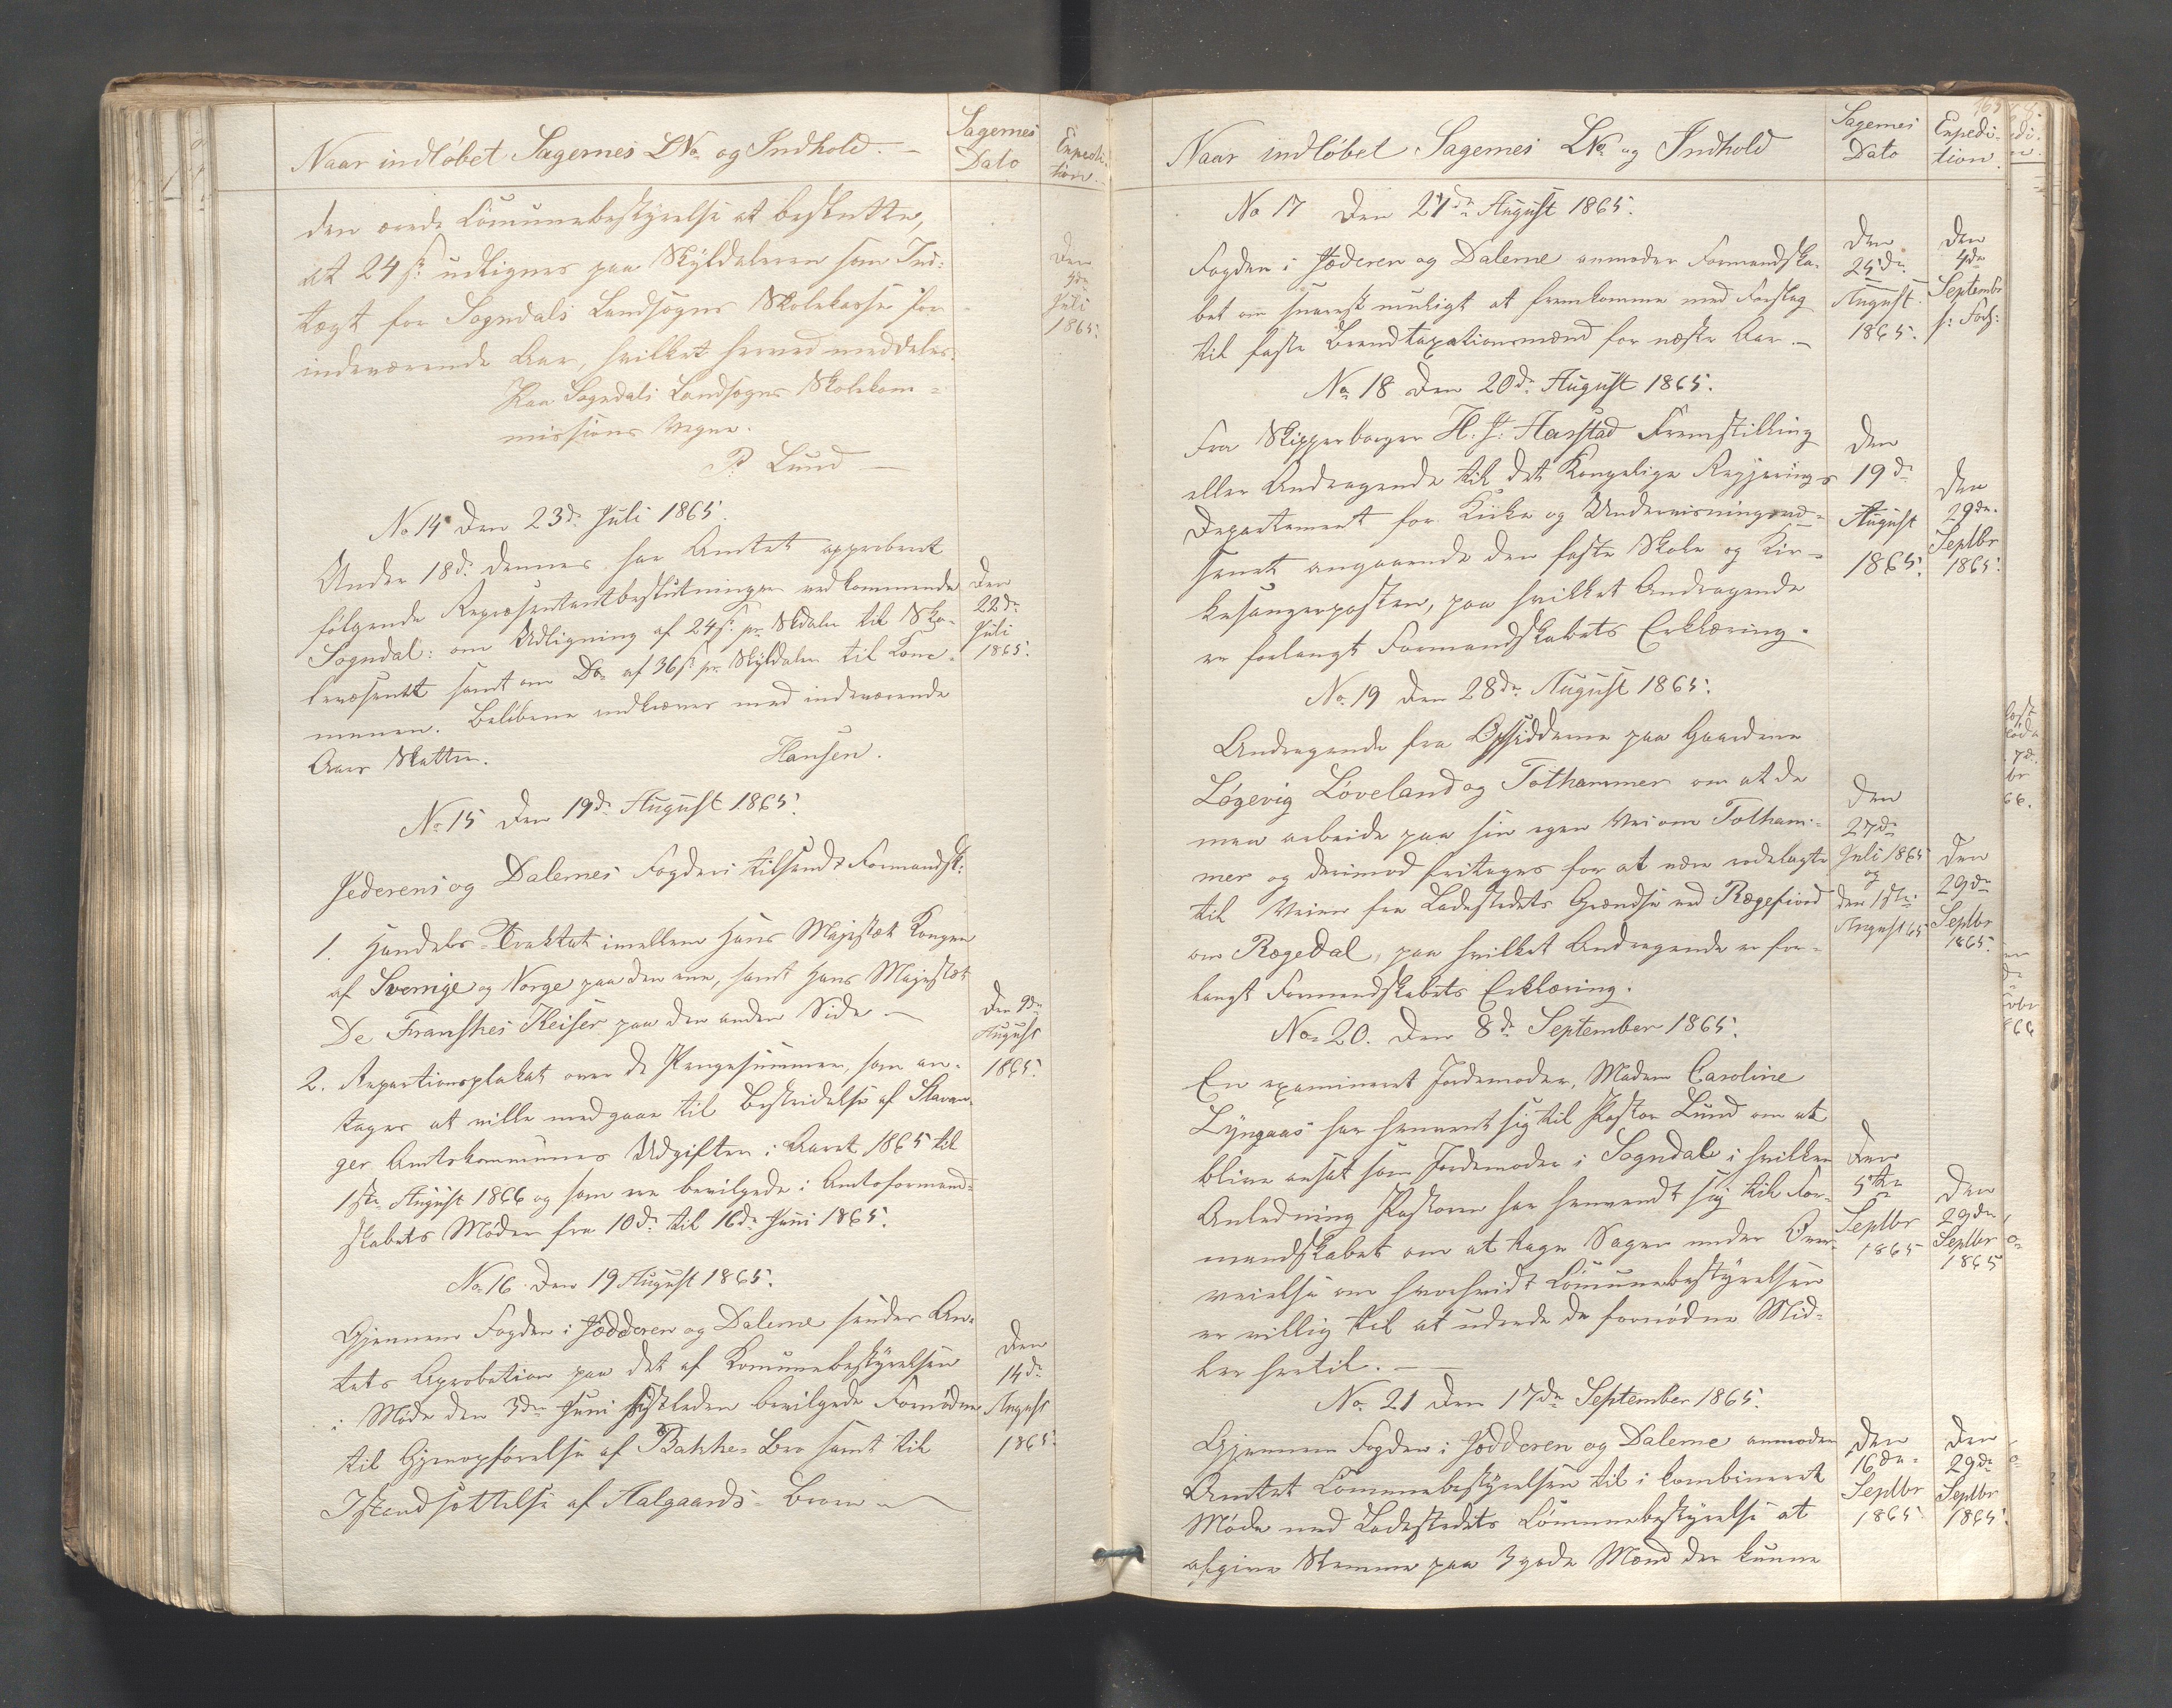 Naar indløbet Sagernes LNo og Indhold. —
Sagernes
Dato
Expedi-
tion.
den ærede Communebestyrelse at beslutte,
at 24 s: udlignes paa Skylddaleren som Ind-
tægt for Sogndals Landsogns Skolekasse for
indeværende Aar, hvilket herved meddeles.
Paa Sogndals Landsogns Skolekom-
missions Vegne.
P. Lund —
Den
4de
Juli
1865.
No 14 Den 23de Juli 1865.
Under 18de dennes har Amtet approberet
følgende Repræsentantbeslutninger vedkommende
Sogndal: om Udligning af 24 s. pr. Skdaler til Sko-
levæsenet samt om Do. af 36 s pr. Skylddaler til Com-
munen. Beløbene indkræves med indeværende
Aars Skatter.
Hansen.
Den
22de
Juli
1865.
No 15 Den 19de August 1865.
Jederens og Dalernes Fogderi tilsendt Formandsk:
1. Handels-Traktat imellem Hans Majestæt Kongen
af Sverrige og Norge paa den ene, samt Hans Majestæt
De Franskes Keiser paa den anden Side —
2. Repartionsplakat over de Pengesummer, som an-
tages at ville medgaae til Bestridelse af Stavan-
ger Amtskommunes Udgifter i Aaret 1865 til
1ste August 1866 og som ere bevilgede i Amtsformand-
skabets Møder fra 10de til 16de Juni 1865.
Den 9de
August
1865.
No 16 Den 19 August 1865.
Gjennem Fogden i Jødderen og Dalerne sender Am-
tets Aprobation paa det af Kommunebestyrelsen
i Møde den 3die Juni sistleden bevilgede Fornødne
til Gjenopførelse af Bakke-Bro samt til
Istandsættelse af Aalgaards-Broen —
Den
14de
August
1865.
Naar indløbet Sagernes LNo og Indhold
Sagernes
Dato
Expedi-
tion.
No 17 Den 27de August 1865.
Fogden i Jæderen og Dalerne anmoder Formandska-
bet om snarest muligt at fremkomme med Forslag
til faste Brandtaxationsmænd for næste Aar. —
Den
25de
August
1865.
Den
4de
Septembr
s: Fods:
No 18 Den 20de August 1865.
Fra Skipperborger H. J. Aarstad Fremstilling
eller Andragende til det Kongelige Regjerings
Departement for Kirke og Undervisningsvæ-
senet angaaende den faste Skole og Kir-
kesangerposten, paa hvilket Andragende
er forlangt Formandskabets Erklæring.
Den
19de
August
1865.
Den
29de
Septbr
1865.
No 19 Den 28de August 1865.
Andragende fra Opsidderne paa Gaardene
Løgevig Løveland og Tothammer om at de
maa arbeide paa sin egen Vei om Totham-
mer og derimod fritages for at være rodelagte
til Veien fra Ladestedets Grændse ved Rægefiord
om Rægedal, paa hvilket Andragende er for-
langt Formandskabets Erklæring.
Den
27de
Juli 1865
og
den 1ste
August 65
Den
29de
Septbr
1865.
No 20. Den 8de September 1865.
En examineret Jordemoder, Madam Caroline
Lyngaas har henvendt sig til Pastor Lund om at
blive ansat som Jordemoder i Sogndal i hvilken
Anledning Pastoren har henvendt sig til For-
mandskabet om at tage Sagen under Over-
veielse om hvorvidt Communebestyrelsen
er villig til at udrede de fornødne Mid-
ler hertil. —
Den
5te
Septbr
1865
Den
29de
Septbr
1865
No 21 Den 17de September 1865.
Gjennem Fogden i Jødderen og Dalerne anmoder
Amtet Communebestyrelsen til i kombineret
Møde med Ladestedets Communebestyrelse at
afgive Stemme paa 3 gode Mænd der kunne
Den
16de
Septbr
1865
Den
29de
Septbr
1865.